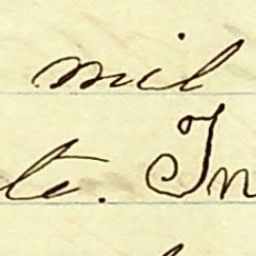 mil
te. In